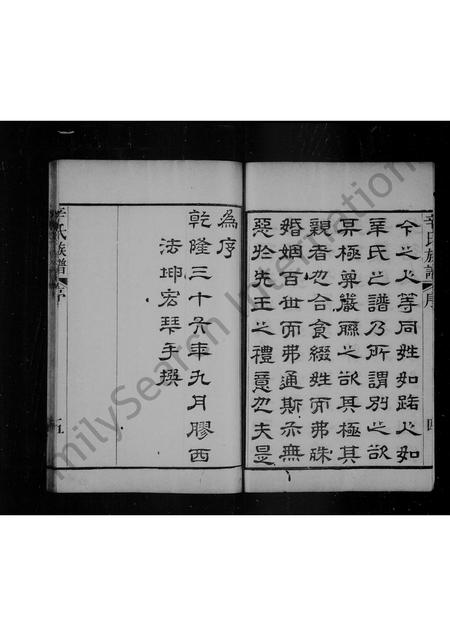 今之人等同姓如路人如
辛氏之譜乃所謂別之欲
其極嚴聯之欲其極其
親者也合食綴姓而弗殊
婚姻百世而弗通斯亦無
惡於先王之禮意也夫是
為序
乾隆三十六年九月膠西
法坤宏琴手撰
辛氏族譜 序 四
辛氏族譜 序 五
FamilySearch International